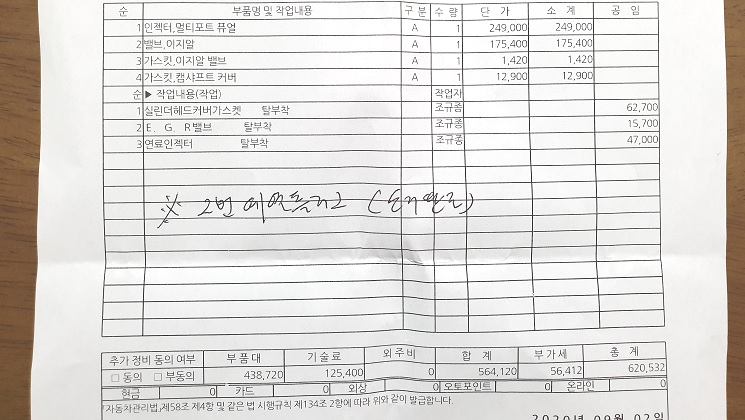 순 부품명 및 작업내용 구 분 수 량 단 가 소 계 공 임
1 인젝터,멀티포트 퓨얼 A 1 249,000 249,000
2 밸브,이지알 A 1 175,400 175,400
3 가스킷,이지알 밸브 A 1 1,420 1,420
4 가스킷,캠샤프트 커버 A 1 12,900 12,900
순 ▶ 작업내용(작업) 작업자
1 실린더헤드커버가스켓 탈부착 조규종 62,700
2 E. G. R 밸브 탈부착 조규종 15,700
3 연료인젝터 탈부착 조규종 47,000
※ 2번
추가 정비 동의 여부 부 품 대 기 술 료 외 주 비 합 계 부 가 세 총 계
□ 동의 □ 부동의 438,720 125,400 0 564,120 56,412 620,532
현금 0 카드 0 외상 0 오토포인트 0 온라인 0
「자동차관리법」제58조 제4항 및 같은 법 시행규칙 제134조 2항에 따라 위와 같이 발급합니다.
2020 년 09 월 02 일